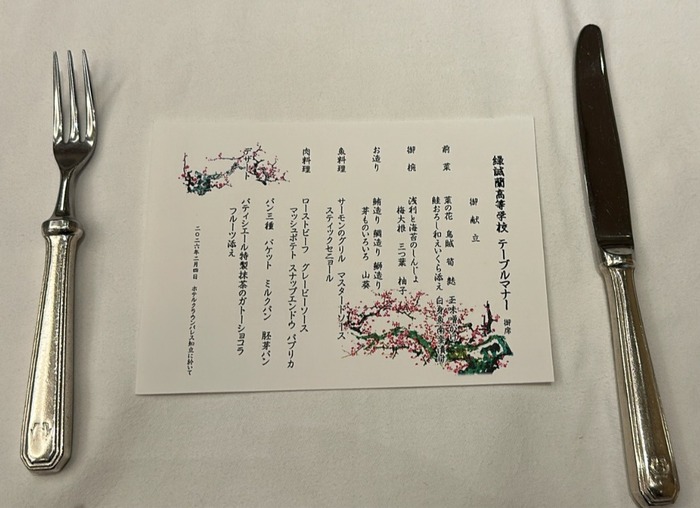 緑誠蘭高等学校 テーブルマナー 御席
御献立
前菜 菜の花 烏賊 筍 麩
鮭おろし和えいくら添え 白身魚南蛮漬け
御椀 浅利と海苔のしんじょ
梅大根 三つ葉 柚子
お造り 鮪造り 鯛造り 鰤造り
芽ものいろいろ 山葵
魚料理 サーモンのグリル マスタードソース
スティックセニョール
肉料理 ローストビーフ グレービーソース
マッシュポテト スナップエンドウ パプリカ
パン三種 バケット ミルクパン 胚芽パン
デザート パティシエール特製抹茶のガトーショコラ
フルーツ添え
二〇二六年二月四日 ホテルクラウンパレス知立に於いて